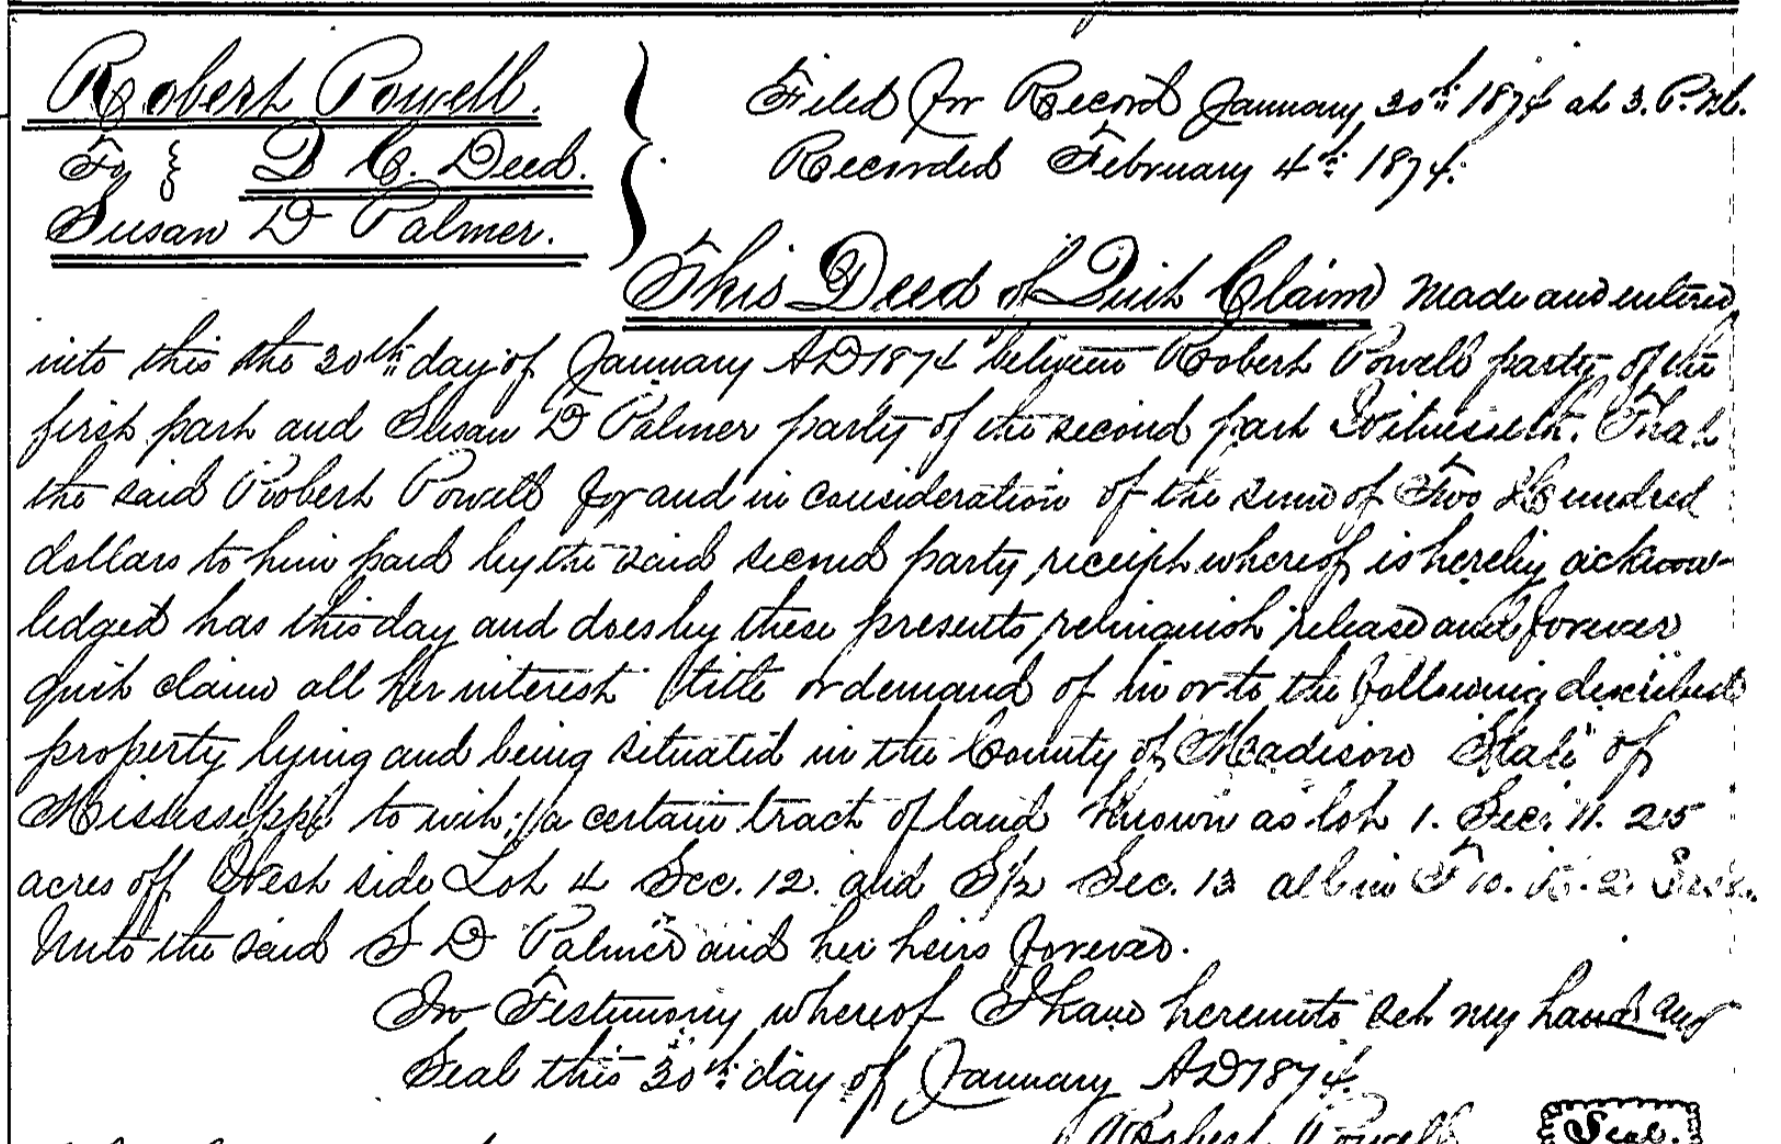 Robert Powell.
To Q C. Deed.
Susan D Palmer.
Filed for Record January 30th 1874 at 3. P.M.
Recorded February 4th 1874.
This Deed of Quit Claim made and entered
into this the 30th day of January AD 1874 between Robert Powell party of the
first part and Susan D Palmer party of the second part Witnesseth. That
the said Robert Powell for and in consideration of the sum of Two Hundred
dollars to him paid by the said second party receipt whereof is hereby acknow-
ledged has this day and does by these presents relinquish release and forever
quit claim all her interest title or demand of in or to the following described
property lying and being situated in the County of Madison State of
Mississippi to wit; a certain tract of land known as lot 1. Sec. 11. 25
acres off West side Lot 4 Sec. 12. and S/2 Sec. 13 all in T 10. R. 2
Unto the said S D Palmer and her heirs forever.
In Testimony whereof I have hereunto set my hand and
Seal this 30th day of January AD 1874.
Robert Powell Seal.